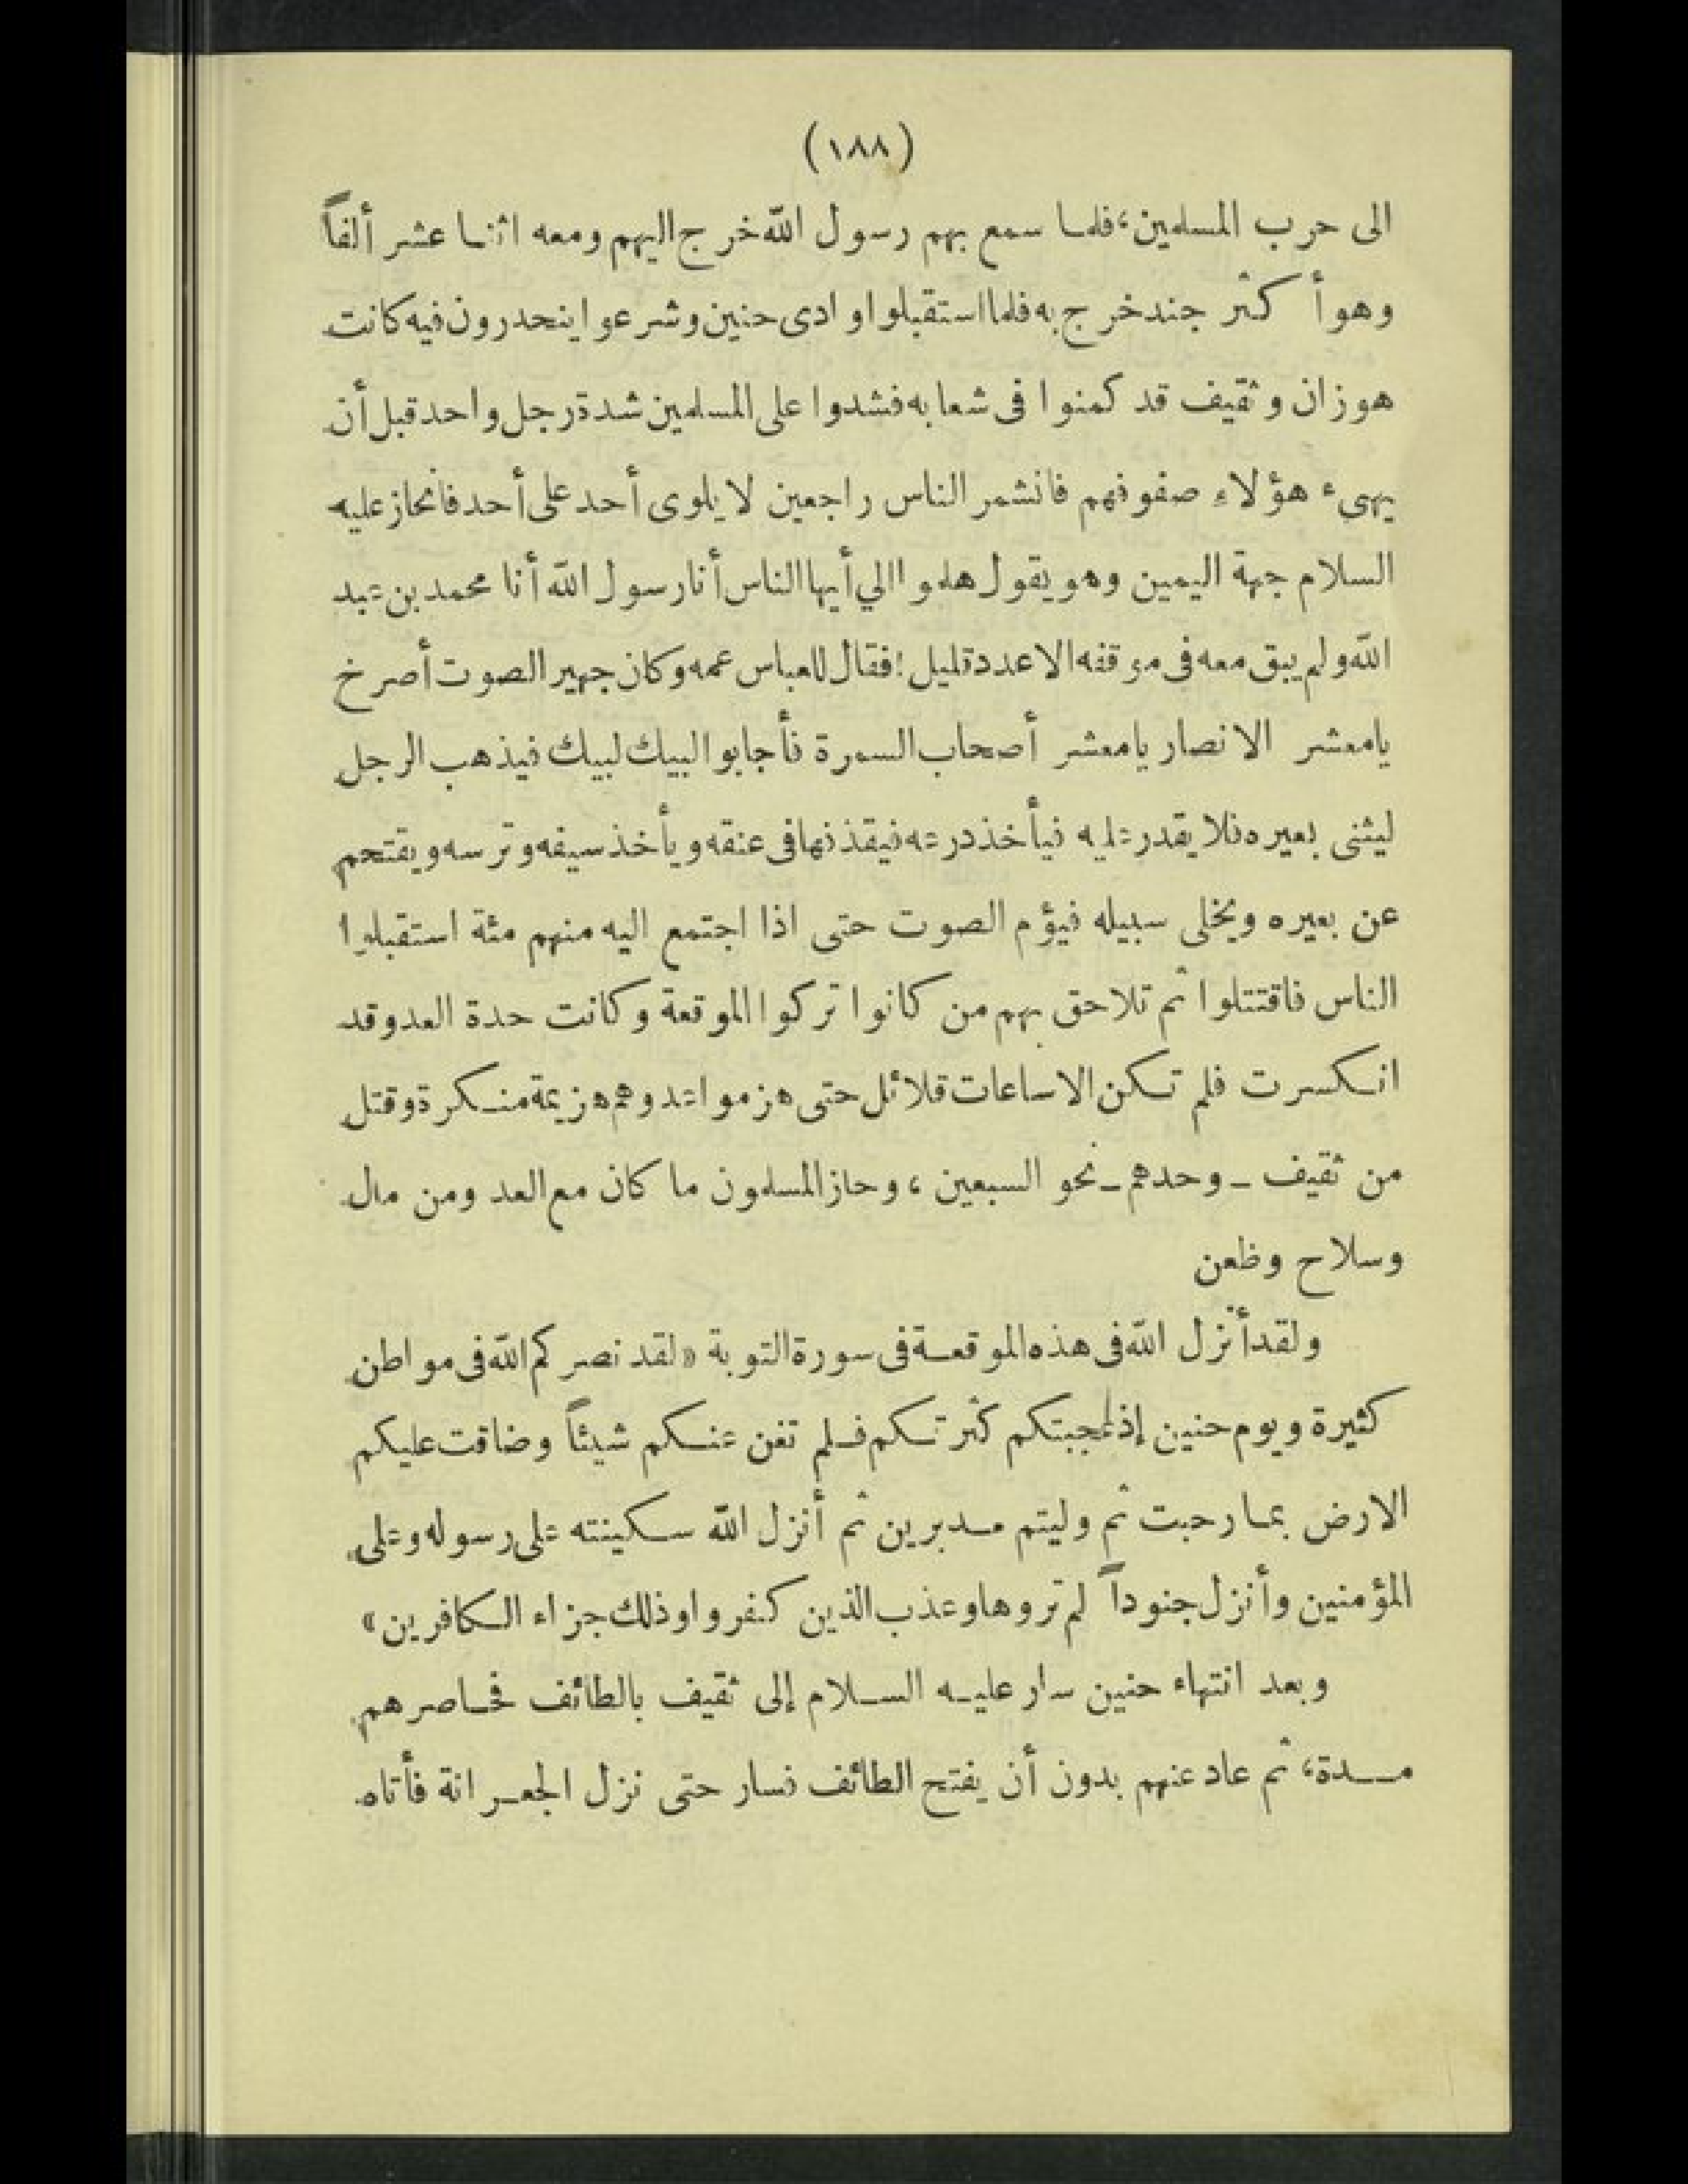 (١٨٨)
الى حرب المسلمين، فلما سمع بهم رسول الله خرج اليهم ومعه اثنا عشر ألفاً
وهو أكثر جند خرج به فلما استقبلوا وادى حنين وشرعوا ينحدرون فيه كانت
هوزان وثقيف قد كمنوا فى شعابه فشدوا على المسلمين شدة رجل واحد قبل أن
يهيء هؤلاء صفوفهم فانشمر الناس راجعين لا يلوى أحد على أحد فانحاز عليه
السلام جهة اليمين وهو يقول هلموا الي أيها الناس أنا رسول الله أنا محمد بن عبد
الله ولم يبق معه فى موقفه الا عدد قليل! فقال للعباس عمه وكان جهير الصوت أصرخ
يامعشر الانصار يامعشر أصحاب السمرة فأجابوا لبيك لبيك فيذهب الرجل
ليثنى بعيره فلا يقدر عليه فيأخذ درعه فيقذفها فى عنقه ويأخذ سيفه وترسه ويقتحم
عن بعيره ويخلى سبيله فيؤم الصوت حتى اذا اجتمع اليه منهم مئة استقبلوا
الناس فاقتتلوا ثم تلاحق بهم من كانوا تركوا الموقعة وكانت حدة العدو قد
انكسرت فلم تكن الا ساعات قلائل حتى هزموا عدوهم هزيمة منكرة وقتل
من ثقيف ـ وحدهم ـ نحو السبعين ، وحاز المسلمون ما كان مع العدو من مال
وسلاح وظعن
ولقد أنزل الله فى هذه الموقعة فى سورة التوبة «لقد نصركم الله فى مواطن
كثيرة ويوم حنين إذ أعجبتكم كثرتكم فلم تغن عنكم شيئاً وضاقت عليكم
الارض بما رحبت ثم وليتم مدبرين ثم أنزل الله سكينته على رسوله وعلى
المؤمنين وأنزل جنوداً لم تروها وعذب الذين كفروا وذلك جزاء الكافرين»
وبعد انتهاء حنين سار عليه السلام إلى ثقيف بالطائف فحاصرهم
مدة، ثم عاد عنهم بدون أن يفتح الطائف فسار حتى نزل الجعرانة فأتاه